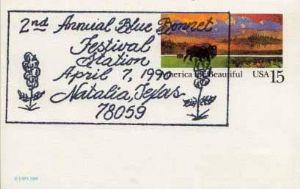 2nd Annual Blue Bonnet
Festival
Station
April 7, 1990
Natalia, Texas
78059
America the Beautiful
USA 15